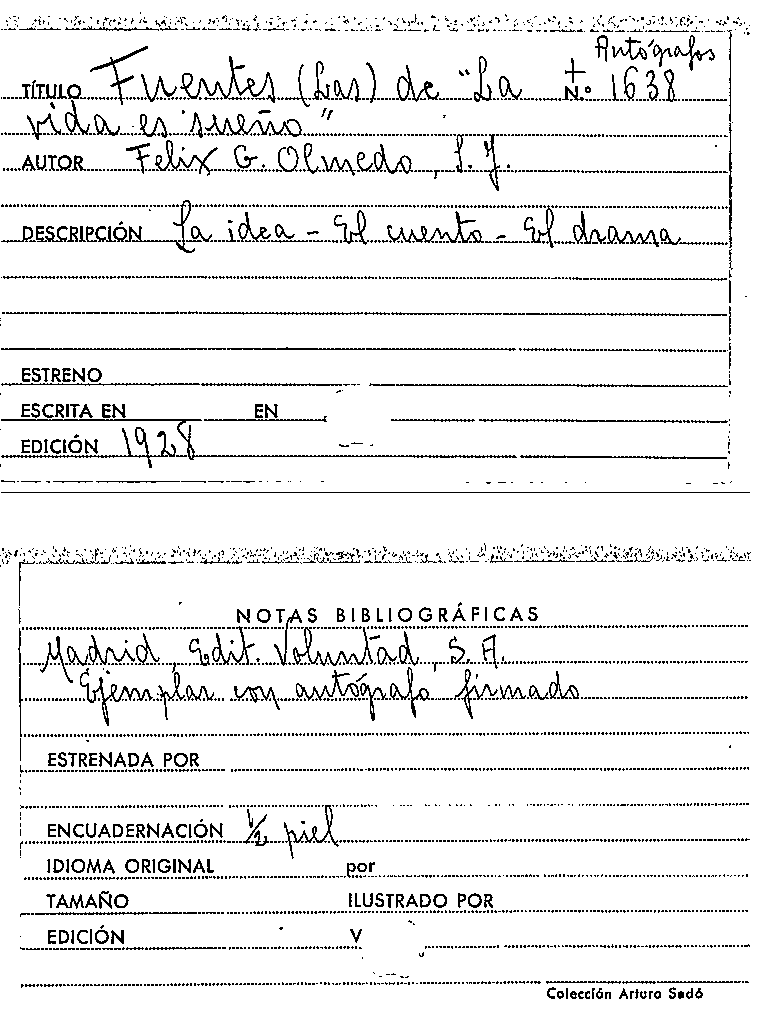 Autógrafos
TÍTULO Fuentes (Las) de "La + N.º 1638
vida es sueño"
AUTOR Felix G. Olmedo, S. J.
DESCRIPCIÓN La idea - El cuento - El drama
ESTRENO
ESCRITA EN EN
EDICIÓN 1928
NOTAS BIBLIOGRÁFICAS
Madrid, Edit. Voluntad, S. A.
Ejemplar con autógrafo firmado
ESTRENADA POR
ENCUADERNACIÓN 1/2 piel
IDIOMA ORIGINAL por
TAMAÑO ILUSTRADO POR
EDICIÓN V
Colección Arturo Sedó